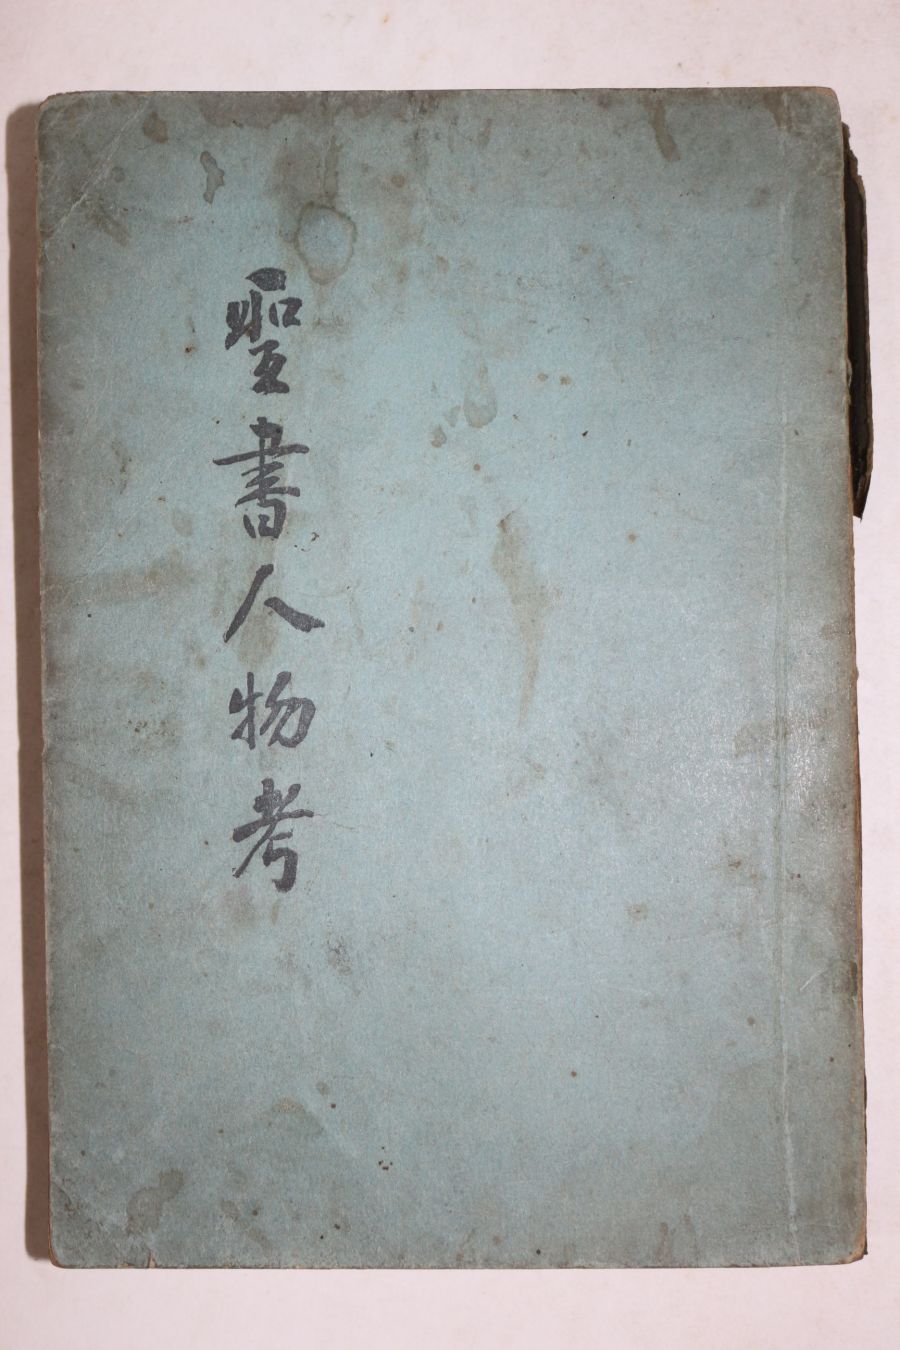 聖書人物考